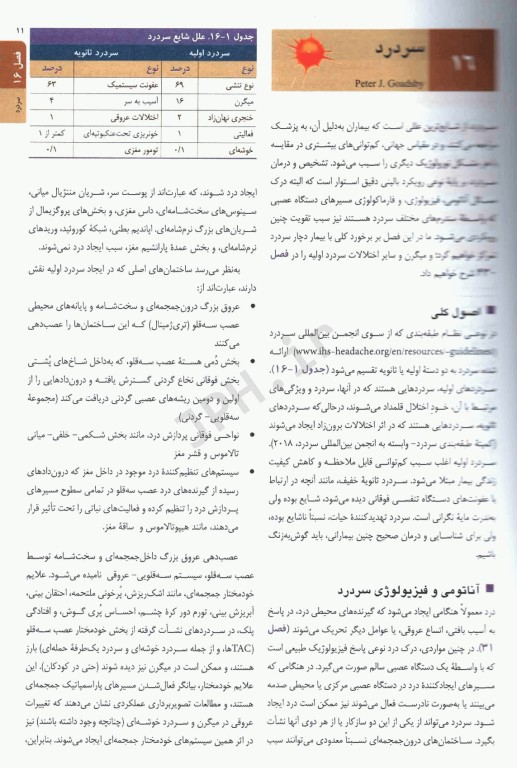 ۱۶
سردرد
Peter J. Goadsby
سردرد، از شایع‌ترین عللی است که بیماران به‌دلیل آن، به پزشک
مراجعه می‌کنند و در مقیاس جهانی، کم‌توانی‌های بیشتری در مقایسه
مشکل نورولوژیک دیگری را سبب می‌شود. تشخیص و درمان
سردرد، بر پایهٔ نوعی رویکرد بالینی دقیق استوار است که البته درک
آناتومی، فیزیولوژی، و فارماکولوژی مسیرهای دستگاه عصبی
که واسطهٔ سندرم‌های مختلف سردرد هستند نیز سبب تقویت چنین
رویکردی می‌شود. ما در این فصل بر برخورد کلی با بیمار دچار سردرد
تمرکز خواهیم کرد؛ و میگرن و سایر اختلالات سردرد اولیه را در فصل
۴۳۰ شرح خواهیم داد.
اصول کلی
در نوعی نظام طبقه‌بندی که از سوی انجمن بین‌المللی سردرد
(www.ihs-headache.org/en/resources-guidelines) ارائه
شده سردرد به دو دستهٔ اولیه یا ثانویه تقسیم می‌شود (جدول ۱-۱۶).
سردردهای اولیه، سردردهایی هستند که در آنها، سردرد و ویژگی‌های
مرتبط با آن، خود اختلال قلمداد می‌شوند، درحالی‌که سردردهای
ثانویه، سردردهایی هستند که در اثر اختلالات برون‌زاد ایجاد می‌شوند
(کمیتهٔ طبقه‌بندی سردرد- وابسته به انجمن بین‌المللی سردرد، ۲۰۱۸).
سردرد اولیه اغلب سبب کم‌توانی قابل ملاحظه و کاهش کیفیت
زندگی بیمار مبتلا می‌شود. سردرد ثانویهٔ خفیف، مانند آنچه در ارتباط
با عفونت‌های دستگاه تنفسی فوقانی دیده می‌شود، شایع بوده ولی
به‌ندرت مایهٔ نگرانی است. سردرد تهدیدکنندهٔ حیات، نسبتاً ناشایع بوده،
ولی برای شناسایی و درمان صحیح چنین بیمارانی، باید گوش‌به‌زنگ
باشیم.
آناتومی و فیزیولوژی سردرد
درد معمولاً هنگامی ایجاد می‌شود که گیرنده‌های محیطی درد، در پاسخ
به آسیب بافتی، اتساع عروقی، یا عوامل دیگر تحریک می‌شوند (فصل
۳۱). در چنین مواردی، درک درد نوعی پاسخ فیزیولوژیک طبیعی است
که با واسطهٔ یک دستگاه عصبی سالم صورت می‌گیرد. در هنگامی که
مسیرهای ایجادکنندهٔ درد در دستگاه عصبی مرکزی یا محیطی صدمه
می‌بینند یا به‌صورت نادرست فعال می‌شوند نیز ممکن است درد ایجاد
شود. سردرد می‌تواند از یکی از این دو سازکار یا از هر دوی آنها نشأت
بگیرد. ساختمان‌های درون‌جمجمه‌ای نسبتاً معدودی می‌توانند سبب
۱۱
فصل ۱۶
سردرد
جدول ۱-۱۶. علل شایع سردرد
سردرد اولیه سردرد ثانویه
نوع درصد نوع درصد
نوع تنشی ۶۹ عفونت سیستمیک ۶۳
میگرن ۱۶ آسیب به سر ۴
خنجری نهان‌زاد ۲ اختلالات عروقی ۱
فعالیتی ۱ خونریزی تحت‌عنکبوتیه‌ای کمتر از ۱
خوشه‌ای ۰/۱ تومور مغزی ۰/۱
ایجاد درد شوند، که عبارت‌اند از پوست سر، شریان مننژیال میانی،
سینوس‌های سخت‌شامه‌ای، داس مغزی، و بخش‌های پروگزیمال از
شریان‌های بزرگ نرم‌شامه‌ای. اپاندیم بطنی، شبکهٔ کوروئید، وریدهای
نرم‌شامه‌ای، و بخش عمدهٔ پارانشیم مغز، سبب ایجاد درد نمی‌شوند.
به‌نظر می‌رسد ساختمان‌های اصلی که در ایجاد سردرد اولیه نقش
دارند، عبارت‌اند از:
• عروق بزرگ درون‌جمجمه‌ای و سخت‌شامه و پایانه‌های محیطی
عصب سه‌قلو (تری‌ژمینال) که این ساختمان‌ها را عصب‌دهی
می‌کنند
• بخش دُمی هستهٔ عصب سه‌قلو، که به‌داخل شاخ‌های پُشتی
بخش فوقانی نخاع گردنی گسترش یافته و درون‌دادهایی را از
اولین و دومین ریشه‌های عصبی گردنی دریافت می‌کند (مجموعهٔ
سه‌قلویی- گردنی)
• نواحی فوقانی پردازش درد، مانند بخش شکمی- خلفی- میانی
تالاموس و قشر مغز
• سیستم‌های تنظیم‌کنندهٔ درد موجود در داخل مغز که درون‌دادهای
رسیده از گیرنده‌های درد عصب سه‌قلو در تمامی سطوح مسیرهای
پردازش درد را تنظیم کرده و فعالیت‌های نباتی را تحت تأثیر قرار
می‌دهند، مانند هیپوتالاموس و ساقهٔ مغز.
عصب‌دهی عروق بزرگ داخل‌جمجمه‌ای و سخت‌شامه توسط
عصب سه‌قلو، سیستم سه‌قلویی- عروقی نامیده می‌شود. علایم
خودمختار جمجمه‌ای، مانند اشک‌ریزش، پُرخونی ملتحمه، احتقان بینی،
آبریزش بینی، تورم دور کرهٔ چشم، احساس پُری گوش، و افتادگی
پلک، در سردردهای نشأت گرفته از بخش خودمختار عصب سه‌قلو
(TACها، و از جمله سردرد خوشه‌ای و سردرد یک‌طرفهٔ حمله‌ای) بارز
هستند، و ممکن است در میگرن نیز دیده شوند (حتی در کودکان). این
علایم خودمختار، بیانگر فعال‌شدن مسیرهای پاراسمپاتیک جمجمه‌ای
هستند، و مطالعات تصویربرداری عملکردی نشان می‌دهند که تغییرات
عروقی در میگرن و سردرد خوشه‌ای (چنانچه وجود داشته باشند) نیز
در اثر همین سیستم‌های خودمختار جمجمه‌ای ایجاد می‌شوند. بنابراین،